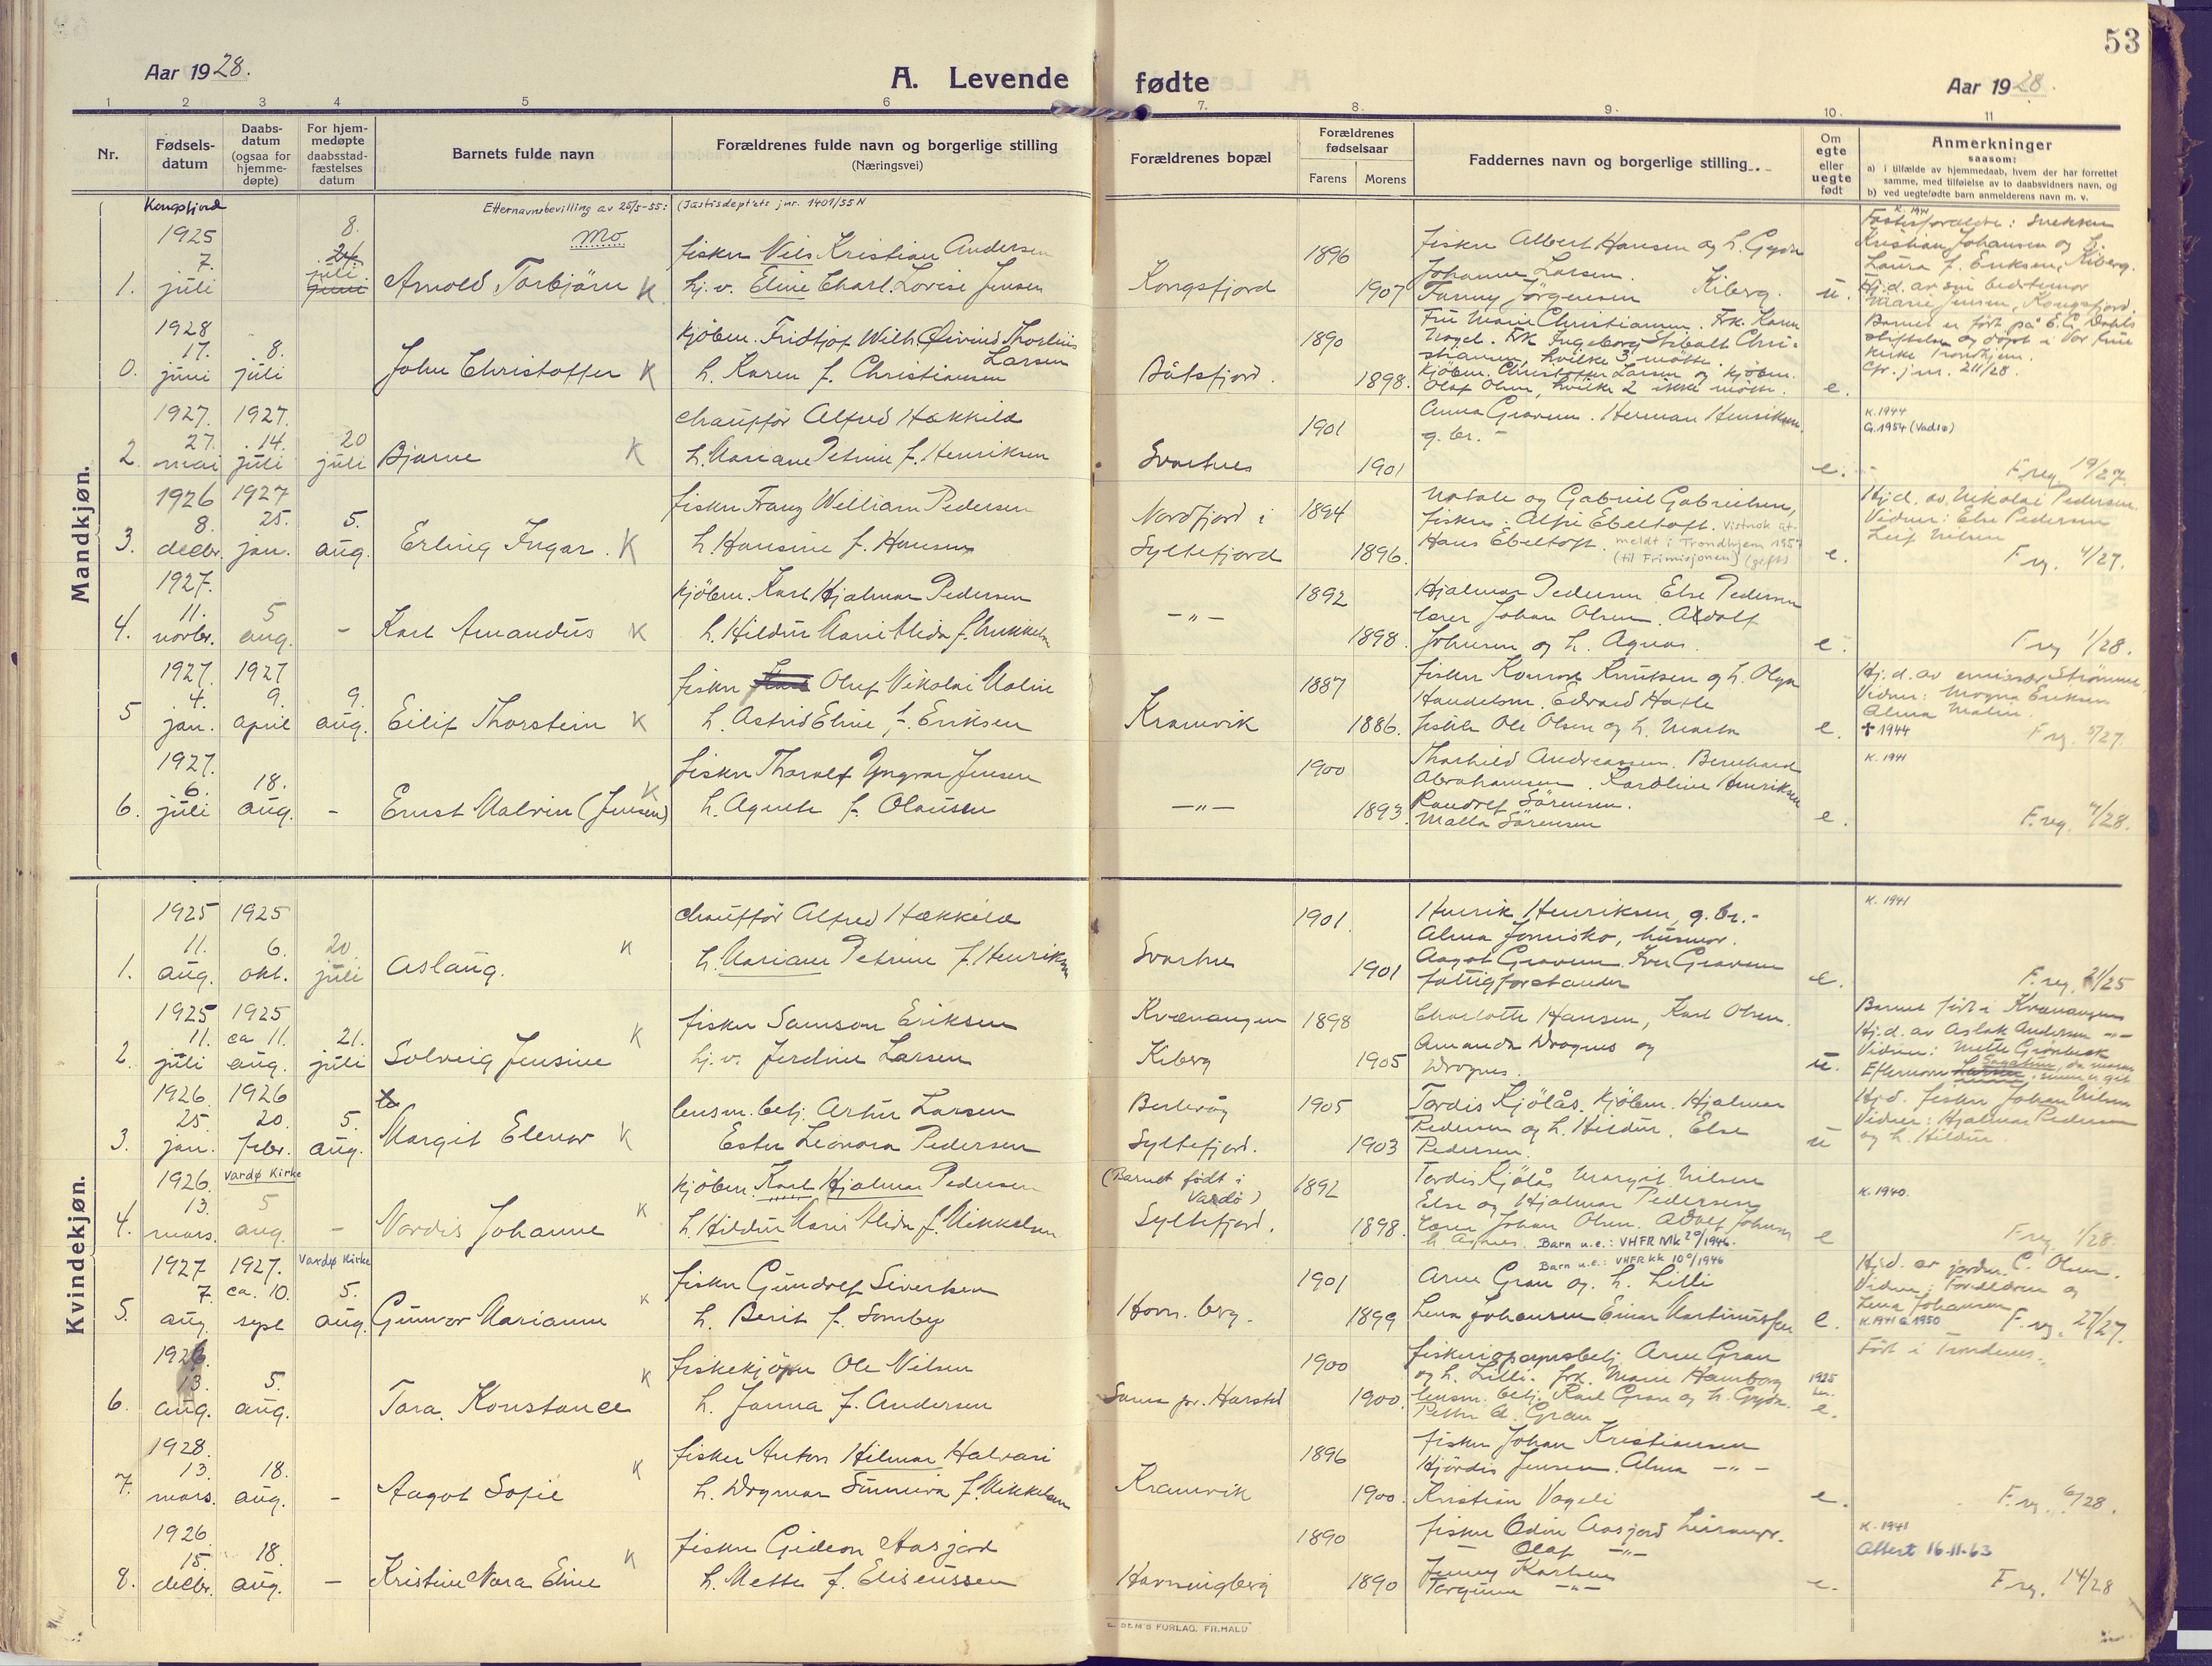 53
Aar 1928.
A. Levende fødte
Aar 1928.
1 2 3 4 5 6 7. 8. 9. 10. 11
Nr.
Fødsels-
datum
Daabs-
datum
(ogsaa for
hjemme-
døpte)
For hjem-
medøpte
daabsstad-
fæstelses
datum
Barnets fulde navn
Forældrenes fulde navn og borgerlige stilling
(Næringsvei)
Forældrenes bopæl
Forældrenes
fødselsaar
Farens Morens
Faddernes navn og borgerlige stilling
Om
egte
eller
uegte
født
Anmerkninger
saasom:
a) i tilfælde av hjemmedaab, hvem der har forrettet
samme, med tilføielse av to daabsvidners navn, og
b) ved uegtefødte barn anmelderens navn m. v.
Mandkjøn.
Kongsfjord
Etternavnsbevilling av 25/5-55: (Justisdeptets jnr. 1401/55 N
1.
1925
7.
juli
8.
24.
juli
juni
Mo
Arnold Torbjørn K
fisker Nils Kristian Andersen
hj.v. Eline Charl. Lovise Jensen
Kongsfjord
1896
1907
fisker Albert Hansen og h. Gyda
Johanne Larsen.
Fanny Jörgensen Kiberg.
u.
K. 1941
Fosterforeldre: Snekker
Kristian Johansen og h.
Laura f. Eriksen, Kiberg.
Hj.d. av sin bedstemor
Marie Jensen, Kongsfjord.
0.
1928
17.
juni
8.
juli
John Christoffer K
kjöbm. Fridtjof Wilh. Øivind Thorleif
Larsen
h. Karen f. Christiansen
Båtsfjord.
1890
1898.
Fru Marie Christiansen. Frk. Karen
Nagel. Frk Ingeborg Sibalt Chri-
stiansen, hvilke 3 møtte.
Kjöbm. Christoffer Larsen og kjöbm.
Olaf Olsen, hvilke 2 ikke møtte.
e.
Barnet er født på E.C. Dahls
stiftelse og døpt i Vor Frue
Kirke Trondhjem.
Cfr. jnr. 211/28.
2.
1927.
27.
mai
1927.
14.
juli
20
juli
Bjarne K
chauffør Alfred Hækkilä
h. Mariane Petrine f. Henriksen
Svartnes
1901
1901
Anna Gravem. Herman Henriksen.
g. br. -
e.
K. 1944
G. 1954 (Vadsø)
F. reg. 19/27.
3.
1926
8.
decbr.
1927
25.
jan.
5.
aug.
Erling Ingar. K
fisker Franz William Pedersen
h. Hansine f. Hansen
Nordfjord i
Syltefjord
1894
1896.
Natale og Gabriel Gabrielsen,
fisker. Alfie Ebeltoft. Vistnok ut-
Hans Ebeltoft. meldt i Trondhjem 1957
(til Frimisjonen) (gift)
e.
Hj.d. av Nikolai Pedersen.
Vidner: Else Pedersen
Leif Nilsen
F. reg. 4/27.
4.
1927.
11.
novbr.
5
aug.
-
Karl Amandus K
kjöbm. Karl Hjalmar Pedersen
h. Hildur Marie Alida f. Mikkelsen
- " -
1892
1898.
Hjalmar Pedersen Else Pedersen
lærer Johan Olsen. Adolf
Johnsen og h. Agnes.
e.
F. reg 1/28.
5
1927.
4.
jan.
1927
9.
april
9.
aug.
Eilif Thorstein K
fisker Oluf Nikolai Malin
h. Astrid Eline f. Eriksen
Kramvik
1887
1886.
fisker Konrad Knutsen og h. Olga
Handelsm. Edvard Holte
fisker Ole Olsen og h. Marta
e.
Hj.d. av emissær Strömme.
Vidner: Magna Eriksen
Alma Malin.
✝ 1944
F. reg. 5/27.
6.
1927.
6.
juli
18.
aug.
-
Ernst Malvin (Jensen) K
fisker Tharalf Yngvar Jensen
h. Agnete f. Olausen
- " -
1900
1893.
Thorhild Andreassen. Bernhard
Abrahamsen. Karoline Henriksen
Randolf Sörensen.
Malla Sörensen
e.
K. 1941
F. reg. 4/28.
Kvindekjøn.
1.
1925
11.
aug.
1925
6.
okt.
20.
juli
Aslaug. K
chauffør Alfred Hækkilä
h. Mariane Petrine f. Henriksen
Svartnes
1901.
1901
Henrik Henriksen, g. br. -
Alma Jomisko, husmor.
Aagot Gravem. Iver Gravem
fattigforstander
e.
K. 1941
F. reg. 21/25
2.
1925
11.
juli
1925
ca 11.
aug.
21.
juli
Solveig Jensine K
fisker Samson Eriksen
hj.v. Jerdine Larsen
Kvænangen
Kiberg
1898
1905
Charlotte Hansen, Karl Olsen.
Amanda Dragnes og
Dragnes.
u.
Barnet födt i Kvænangen
Hj.d. av Aslak Andersen - " -
Vidner: Mette Grönbeck
Efternavn
3.
1926.
25.
jan.
1926
20.
febr.
5.
aug.
Margit Elenor K
lensm. betj. Artur Larsen
Ester Leonora Pedersen
Berlevåg
Syltefjord.
1905
1903
Tordis Kjölås. kjöbm. Hjalmar
Pedersen og h. Hildur. Else
Pedersen.
u
Hj.d. fisker Johan Nilsen
Vidner: Hjalmar Pedersen
og h. Hildur.
4.
1926.
13.
mars.
Vardø Kirke
5
aug.
-
Nordis Johanne K
kjöbm. Karl Hjalmar Pedersen
h. Hildur Marie Alida f. Mikkelsen.
(Barnet født i
Vardø)
Syltefjord.
1892
1898.
Tordis Kjölås Margit Nilsen
Else og Hjalmar Pedersen
lærer Johan Olsen. Adolf Johnsen
h. Agnes. Barn u.e.: VHFR Mk 20/1946.
Barn u.e.: VHFR kk 10/1946
e
K. 1940.
F. reg. 1/28.
5.
1927
7.
aug.
1927.
ca. 10.
sept
Vardø Kirke
5.
aug.
Gunvor Marianne K
fisker Gundolf Sivertsen
h. Berit f. Somby
Havn. berg.
1901
1899
Arne Gran og h. Lilli
Lena Johansen Einar Martinussen
e.
Hj.d. av jordm. C. Olsen.
Vidner: Foreldrene og
Lena Johansen
K. 1941 G. 1950 F. reg. 27/27.
6.
1926.
13.
aug.
5.
aug.
Tora Konstance K
fiskekjøper Ole Nilsen
h. Janna f. Andersen
Sama pr. Harstad
1900
1900.
fiskeriopsynsbetj. Arne Gran
og h. Lilli. frk. Marie Hamborg
lensm. betj. Karl Gran og h. Gyda.
Petter A. Gran
1925
e.
Født i Trondenes.
7.
1928.
13.
mars.
18.
aug.
-
Aagot Sofie K
fisker Anton Hilmar Halvari
h. Dagmar Sunniva f. Mikkelsen
Kramvik
1896
1900.
fisker Johan Kristiansen
Hjördis Jensen. Alma - " -
Kristian Vageli
e.
F. reg. 6/28.
8.
1926.
15.
decbr.
18.
aug.
-
Kristine Nora Eline K
fisker Gideon Aasjord
h. Mette f. Eliseussen
Havningberg
1890
1890
fisker Odin Aasjord
Olaf - " -
Jenny Karlsen
Torgunn - " -
e.
K. 1941
Attest 16-11-63
F. reg. 14/28
SEM'S FORLAG, FR.HALD